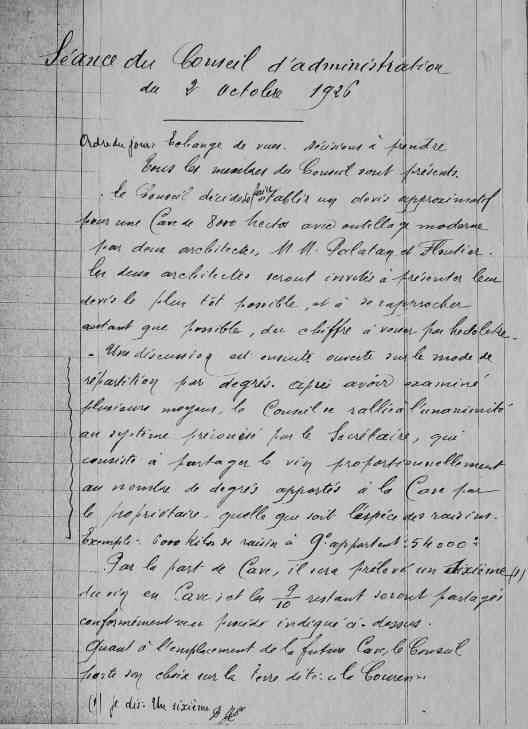 Séance du Conseil d'administration
du 2 Octobre 1926
Ordre du jour: Echange de vues. Décisions à prendre
Tous les membres du Conseil sont présents.
Le Conseil décide de faire établir un devis approximatif
pour une Cave de 8000 hectos avec outillage moderne
par deux architectes, M M. Palatan et Floutier.
Les deux architectes seront invités à présenter leur
devis le plus tôt possible, et à se rapprocher
autant que possible, du chiffre à voter par hectolitre.
- Une discussion est ensuite ouverte sur le mode de
répartition par degrés. après avoir examiné
plusieurs moyens, le Conseil se rallie à l'unanimité
au système préconisé par le Secrétaire, qui
consiste à partager le vin proportionnellement
au nombre de degrés apportés à la Cave par
le propriétaire, quelle que soit l'espèce des raisins.
Exemple. 6000 Kilos de raisin à 9° apportent: 54000°
Par la part de Cave, il sera prélevé un dixième (1)
du vin en Cave, et les 9/10 restant seront partagés
conformément au procédé indiqué ci-dessus.
Quant à l'emplacement de la future Cave, le Conseil
porte son choix sur la Terre dite: le
(1) je dis. Un dixième